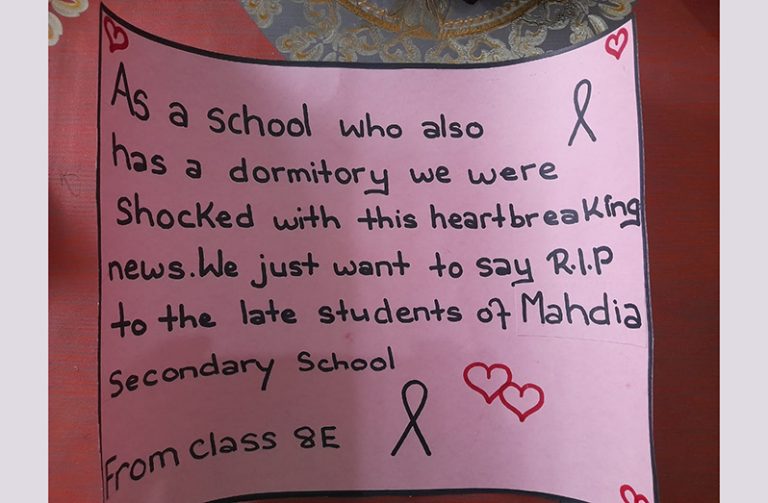 As a school who also
has a dormitory we were
Shocked with this heartbreaking
news. We just want to say R.I.P
to the late students of Mahdia
Secondary School
From Class 8E